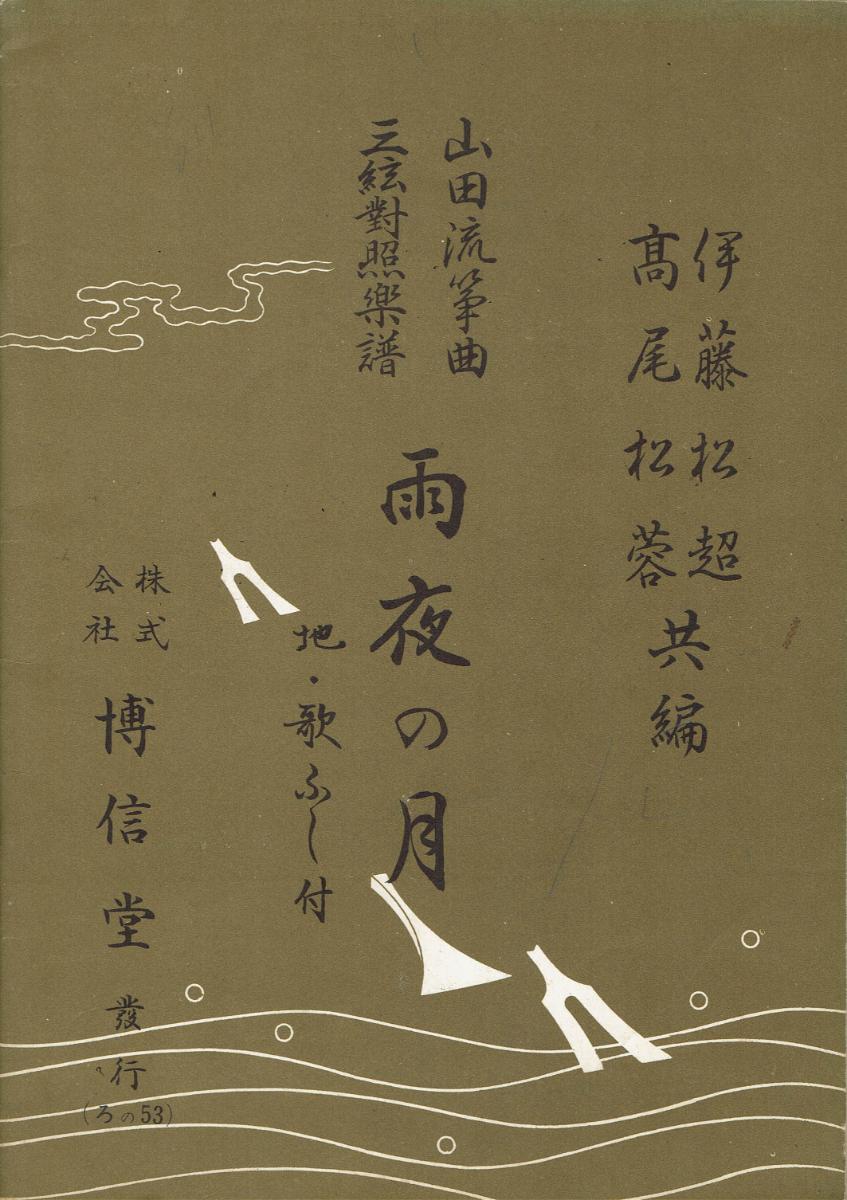 伊藤松超
髙尾松蓉
共編
山田流箏曲
三絃對照樂譜
雨夜の月
地・歌ふし付
株式
会社
博信堂
發行
(ろの53)